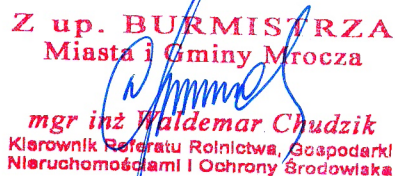 Z up. BURMISTRZA
Miasta i Gminy Mrocza
mgr inż Waldemar Chudzik
Kierownik Referatu Rolnictwa, Gospodarki
Nieruchomościami i Ochrony Środowiska